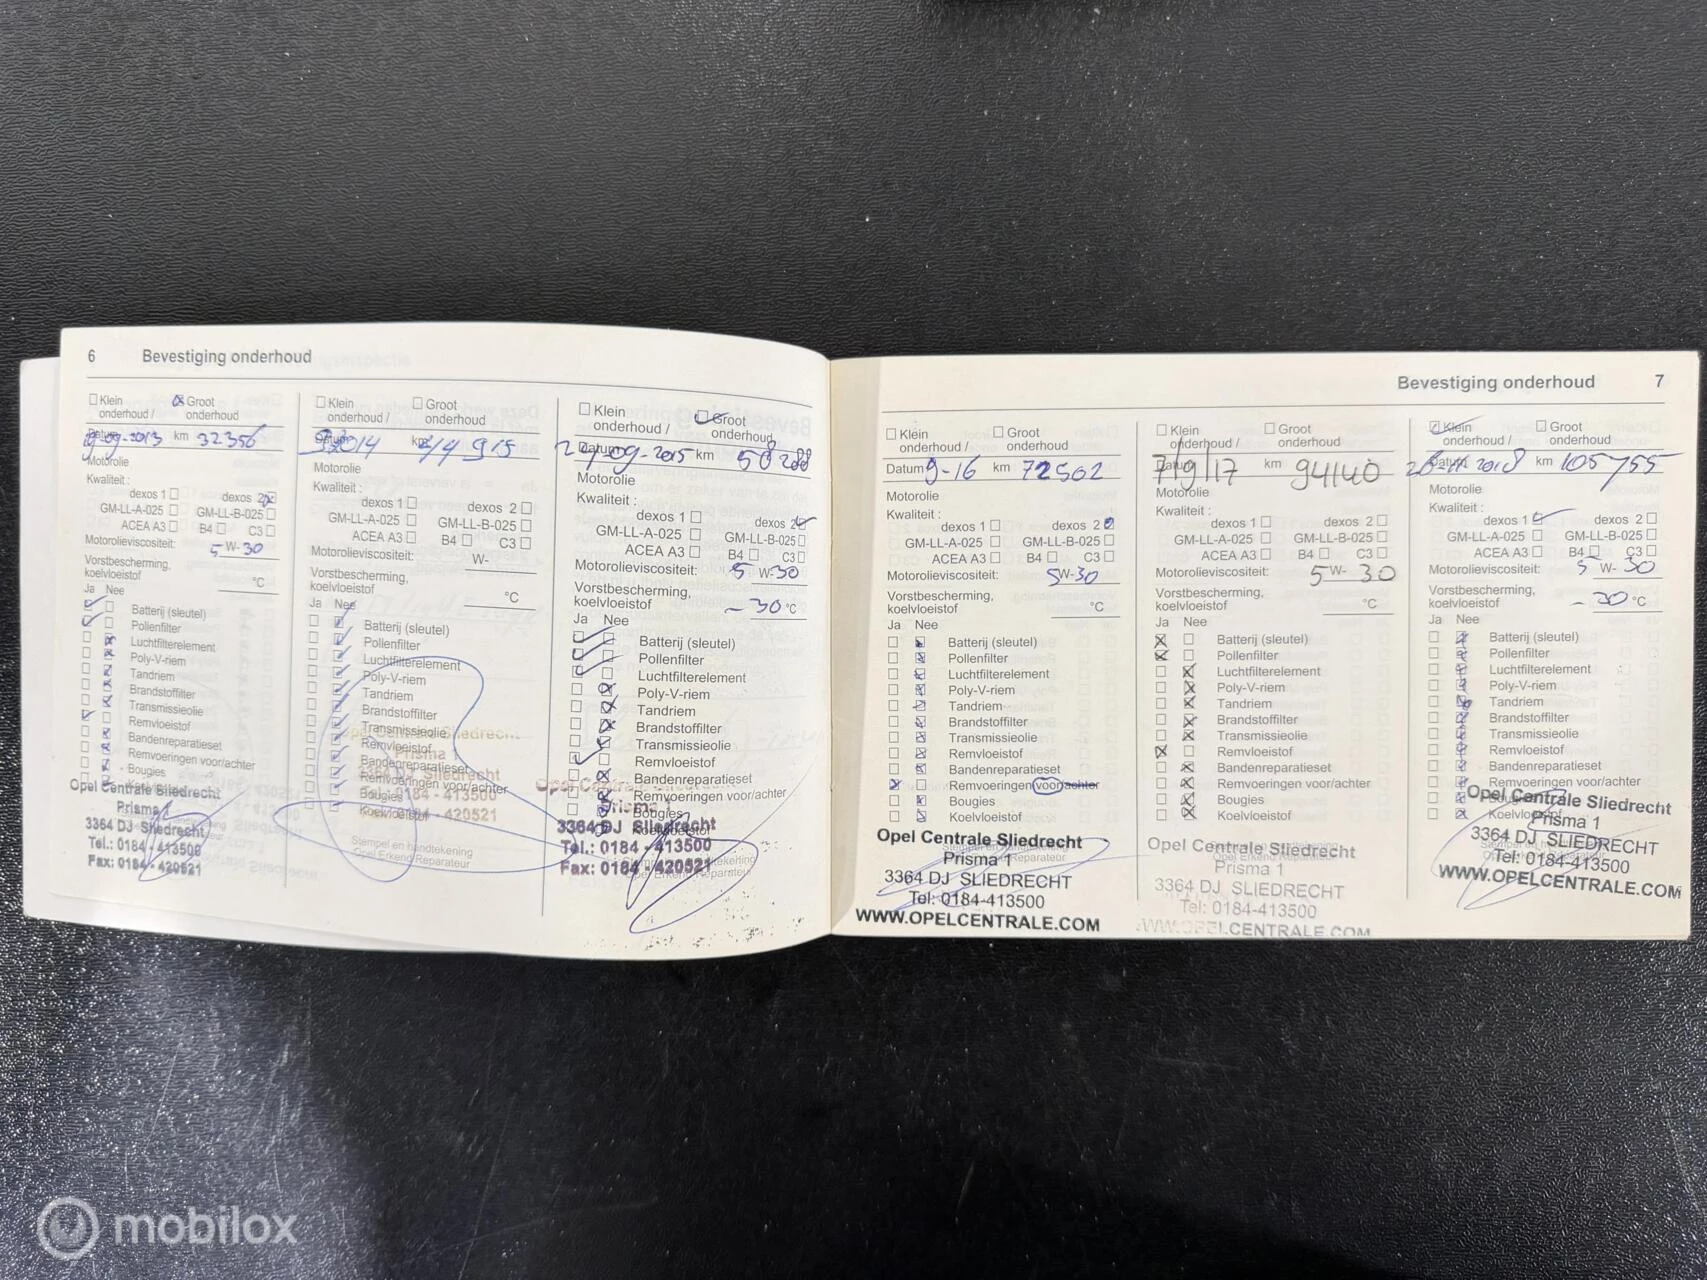 6 Bevestiging onderhoud
Klein onderhoud / Groot onderhoud
Datum 19-09-2013 km 32356
Motorolie
Kwaliteit :
dexos 1 dexos 2
GM-LL-A-025 GM-LL-B-025
ACEA A3 B4 C3
Motorolieviscositeit: 5 W- 30
Vorstbescherming,
koelvloeistof °C
Ja Nee
Batterij (sleutel)
Pollenfilter
Luchtfilterelement
Poly-V-riem
Tandriem
Brandstoffilter
Transmissieolie
Remvloeistof
Bandenreparatieset
Remvoeringen voor/achter
Bougies
Opel Centrale Sliedrecht
Prisma 1
3364 DJ Sliedrecht
Tel.: 0184 - 413500
Fax: 0184 - 420521
Klein onderhoud / Groot onderhoud
Datum 2014 km 44 915
Motorolie
Kwaliteit :
dexos 1 dexos 2
GM-LL-A-025 GM-LL-B-025
ACEA A3 B4 C3
Motorolieviscositeit: W-
Vorstbescherming,
koelvloeistof °C
Ja Nee
Batterij (sleutel)
Pollenfilter
Luchtfilterelement
Poly-V-riem
Tandriem
Brandstoffilter
Transmissieolie
Remvloeistof
Bandenreparatieset
Remvoeringen voor/achter
Bougies
Koelvloeistof
Opel Centrale Sliedrecht
Prisma
3364 DJ Sliedrecht
Tel.: 0184 - 413500
0184 - 420521
Stempel en handtekening
Opel Erkend Reparateur
Klein onderhoud / Groot onderhoud
Datum 24-09-2015 km 58288
Motorolie
Kwaliteit :
dexos 1 dexos 2
GM-LL-A-025 GM-LL-B-025
ACEA A3 B4 C3
Motorolieviscositeit: 5 W-30
Vorstbescherming,
koelvloeistof -30 °C
Ja Nee
Batterij (sleutel)
Pollenfilter
Luchtfilterelement
Poly-V-riem
Tandriem
Brandstoffilter
Transmissieolie
Remvloeistof
Bandenreparatieset
Remvoeringen voor/achter
Bougies
Koelvloeistof
Opel Centrale
Prisma 1
3364 DJ Sliedrecht
Tel.: 0184 - 413500
Fax: 0184 - 420521
Bevestiging onderhoud 7
Klein onderhoud / Groot onderhoud
Datum 9-16 km 72502
Motorolie
Kwaliteit :
dexos 1 dexos 2
GM-LL-A-025 GM-LL-B-025
ACEA A3 B4 C3
Motorolieviscositeit: 5W-30
Vorstbescherming,
koelvloeistof °C
Ja Nee
Batterij (sleutel)
Pollenfilter
Luchtfilterelement
Poly-V-riem
Tandriem
Brandstoffilter
Transmissieolie
Remvloeistof
Bandenreparatieset
Remvoeringen voor/achter
Bougies
Koelvloeistof
Opel Centrale Sliedrecht
Prisma 1
3364 DJ SLIEDRECHT
Tel: 0184-413500
WWW.OPELCENTRALE.COM
Klein onderhoud / Groot onderhoud
Datum 7/9/17 km 94140
Motorolie
Kwaliteit :
dexos 1 dexos 2
GM-LL-A-025 GM-LL-B-025
ACEA A3 B4 C3
Motorolieviscositeit: 5 W- 30
Vorstbescherming,
koelvloeistof °C
Ja Nee
Batterij (sleutel)
Pollenfilter
Luchtfilterelement
Poly-V-riem
Tandriem
Brandstoffilter
Transmissieolie
Remvloeistof
Bandenreparatieset
Remvoeringen voor/achter
Bougies
Koelvloeistof
Opel Centrale Sliedrecht
Opel Erkend Reparateur
Prisma 1
3364 DJ SLIEDRECHT
Tel: 0184-413500
WWW.OPELCENTRALE.COM
Klein onderhoud / Groot onderhoud
Datum 2018 km 105755
Motorolie
Kwaliteit :
dexos 1 dexos 2
GM-LL-A-025 GM-LL-B-025
ACEA A3 B4 C3
Motorolieviscositeit: 5 W- 30
Vorstbescherming,
koelvloeistof -30 °C
Ja Nee
Batterij (sleutel)
Pollenfilter
Luchtfilterelement
Poly-V-riem
Tandriem
Brandstoffilter
Transmissieolie
Remvloeistof
Bandenreparatieset
Remvoeringen voor/achter
Bougies
Koelvloeistof
Opel Centrale Sliedrecht
Prisma 1
3364 DJ SLIEDRECHT
Tel: 0184-413500
WWW.OPELCENTRALE.COM
mobilox